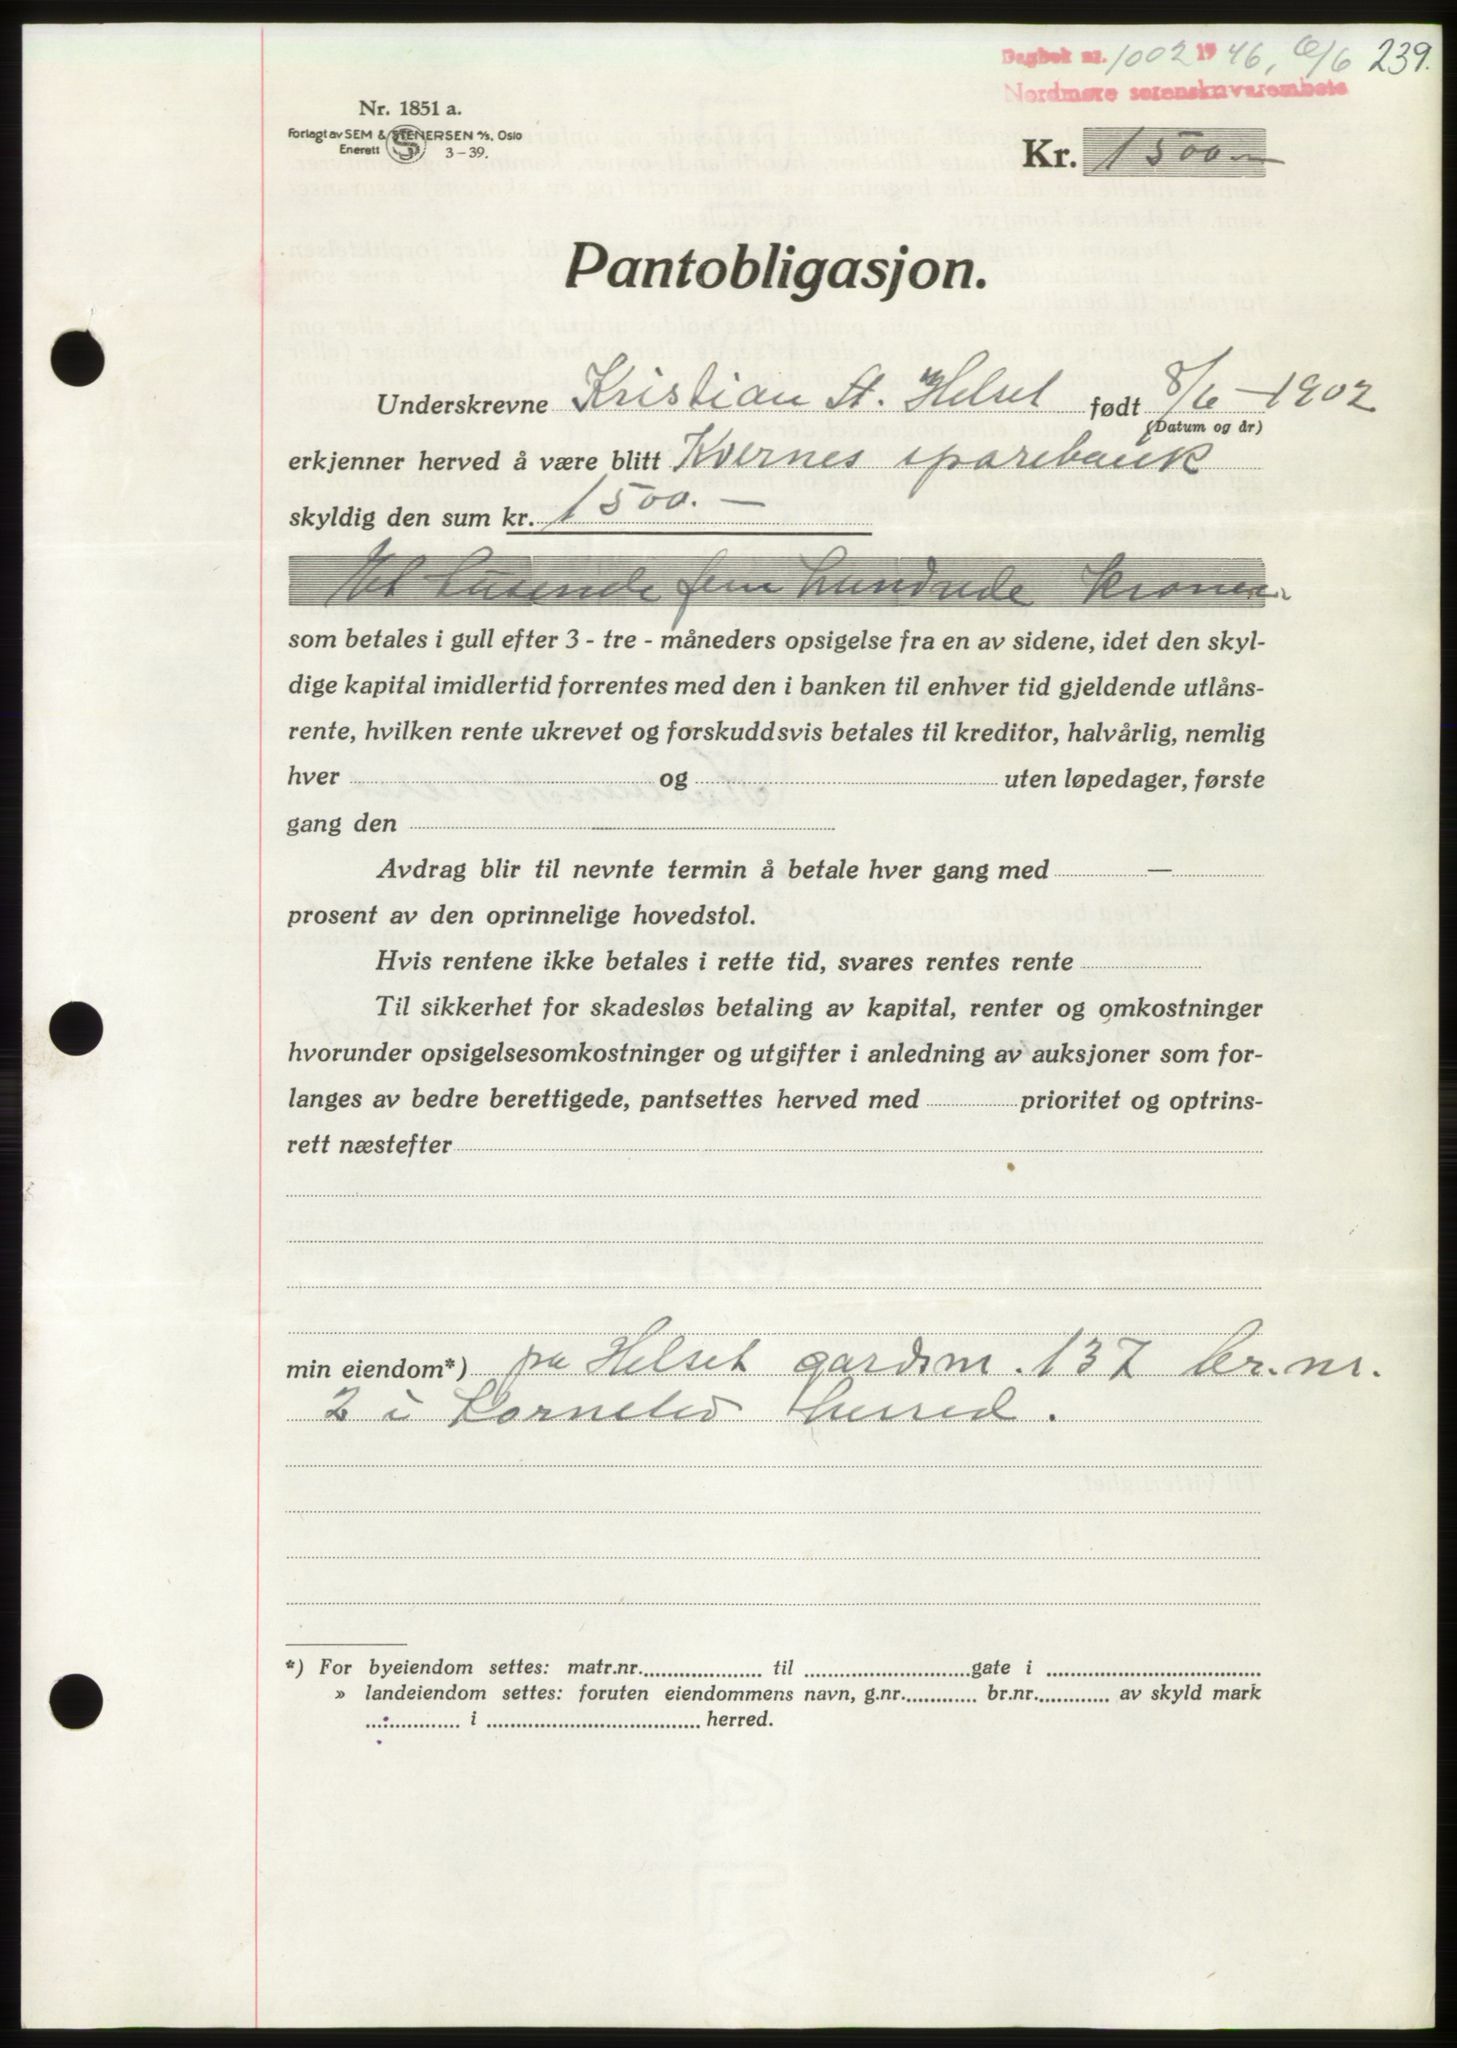 Dagbok nr. 1002 1946, 6/6 239.
Nordmøre sorenskriverembete
Nr. 1851 a.
Forlagt av SEM & STENERSEN A/S, Oslo
Enerett S 3-39.
Kr. 1500.-
Pantobligasjon.
Underskrevne Kristian St. Helset født 8/6-1902
(Datum og år)
erkjenner herved å være blitt Kvernes sparebank
skyldig den sum kr. 1500.-
Et tusende fem hundrede kroner.
som betales i gull efter 3 - tre - måneders opsigelse fra en av sidene, idet den skyl-
dige kapital imidlertid forrentes med den i banken til enhver tid gjeldende utlåns-
rente, hvilken rente ukrevet og forskuddsvis betales til kreditor, halvårlig, nemlig
hver og uten løpedager, første
gang den
Avdrag blir til nevnte termin å betale hver gang med —
prosent av den oprinnelige hovedstol.
Hvis rentene ikke betales i rette tid, svares rentes rente
Til sikkerhet for skadesløs betaling av kapital, renter og omkostninger
hvorunder opsigelsesomkostninger og utgifter i anledning av auksjoner som for-
langes av bedre berettigede, pantsettes herved med prioritet og optrins-
rett næstefter
min eiendom*) på Helset gardsnr. 137 br.nr.
2 i Kornstad herred.
*) For byeiendom settes: matr.nr. til gate i
» landeiendom settes: foruten eiendommens navn, g.nr. br.nr. av skyld mark
i herred.